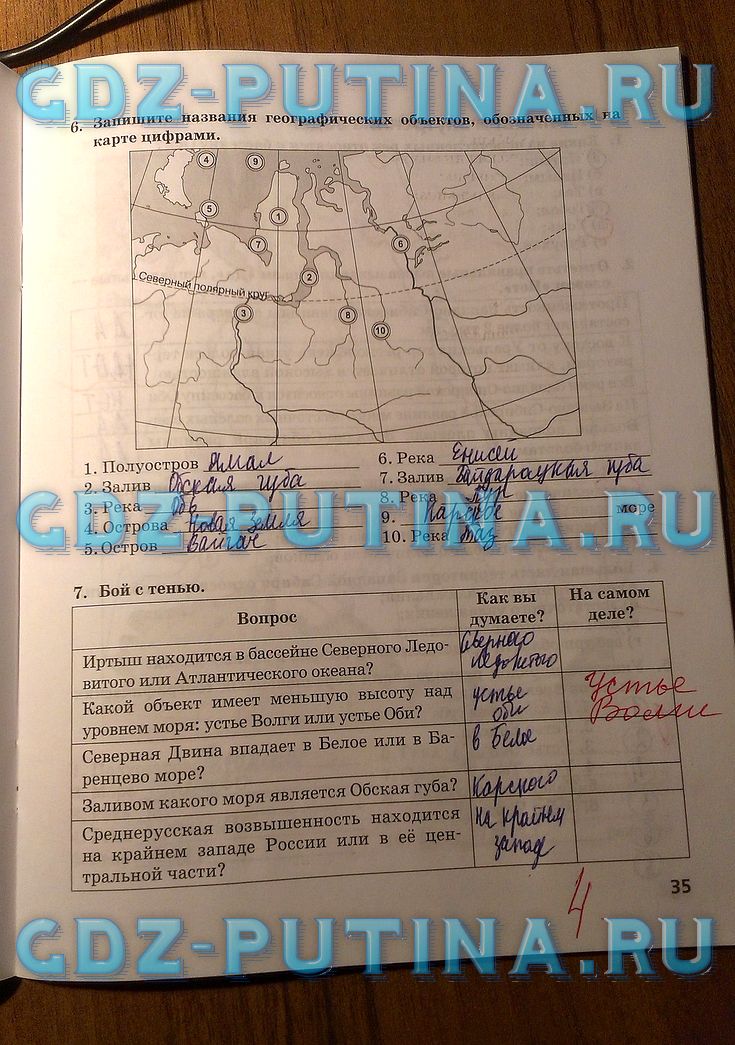 GDZ-PUTINA.RU
6. Запишите названия географических объектов, обозначенных на
карте цифрами.
4 9
5 1
7 6
2
Северный полярный круг
3 8
10
1. Полуостров Ямал
2. Залив Обская губа
3. Река Обь
4. Острова Новая Земля
5. Остров Вайгач
6. Река Енисей
7. Залив Байдарацкая губа
8. Река Пур
9. Карское море
10. Река Таз
GDZ-PUTINA.RU
7. Бой с тенью.
Вопрос
Как вы
думаете?
На самом
деле?
Иртыш находится в бассейне Северного Ледо-
витого или Атлантического океана?
Северного
Ледовитого
Какой объект имеет меньшую высоту над
уровнем моря: устье Волги или устье Оби?
устье
Оби
Устье
Волги
Северная Двина впадает в Белое или в Ба-
ренцево море?
в Белое
Заливом какого моря является Обская губа?
Карского
Среднерусская возвышенность находится
на крайнем западе России или в её цен-
тральной части?
на крайнем
западе
4
35
GDZ-PUTINA.RU